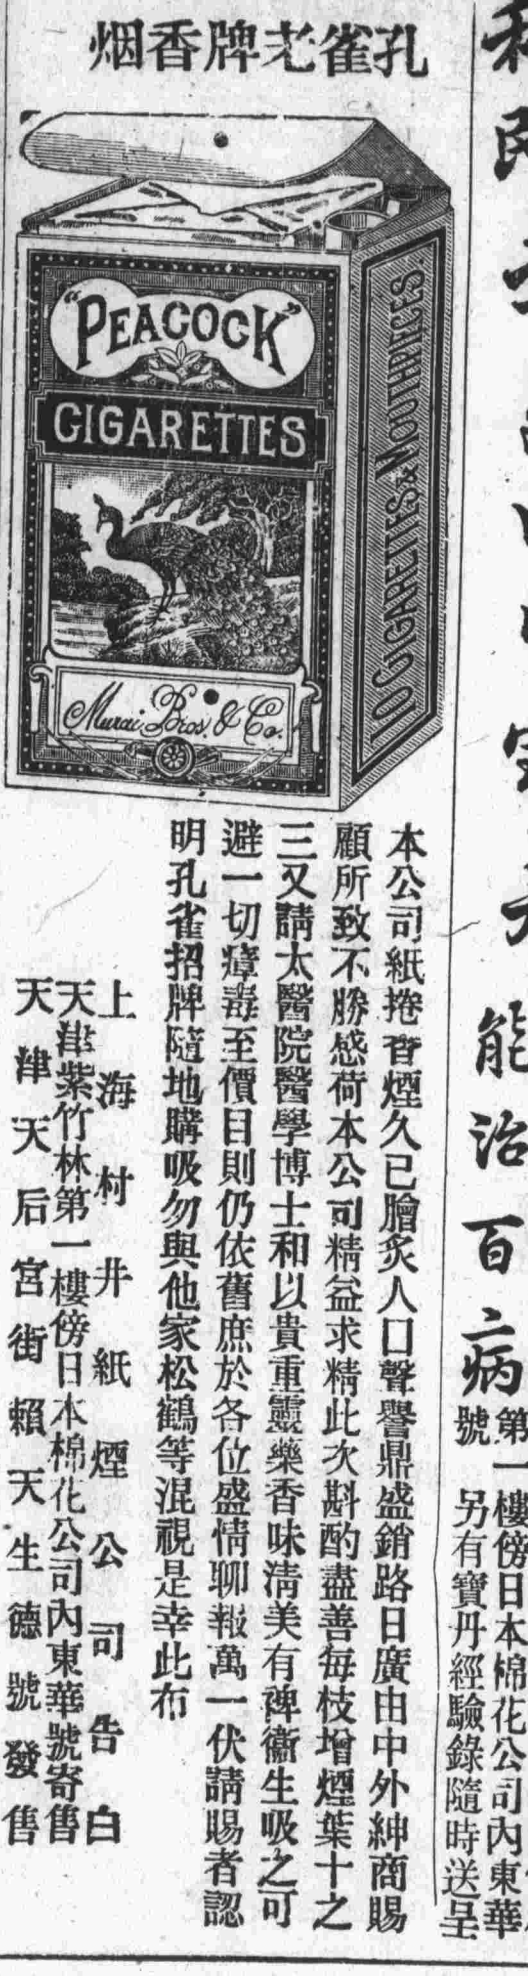 能治百病
第一樓傍日本棉花公司內東華
號 另有寶丹經驗錄隨時送呈
孔雀老牌香烟
"PEACOCK"
CIGARETTES
Murai Bros. & Co.
10 CIGARETTES & MOUTHPIECES.
本公司紙捲香煙久已膾炙人口聲譽鼎盛銷路日廣由中外紳商賜
顧所致不勝感荷本公司精益求精此次斟酌盡善每枝增煙葉十之
三又請太醫院醫學博士和以貴重靈藥香味淸美有裨衞生吸之可
避一切瘴毒至價目則仍依舊庶於各位盛情聊報萬一伏請賜者認
明孔雀招牌隨地購吸勿與他家松鶴等混視是幸此布
上海村井紙煙公司告白
天津紫竹林第一樓傍日本棉花公司內東華號寄售
天津天后宮街賴天生德號發售